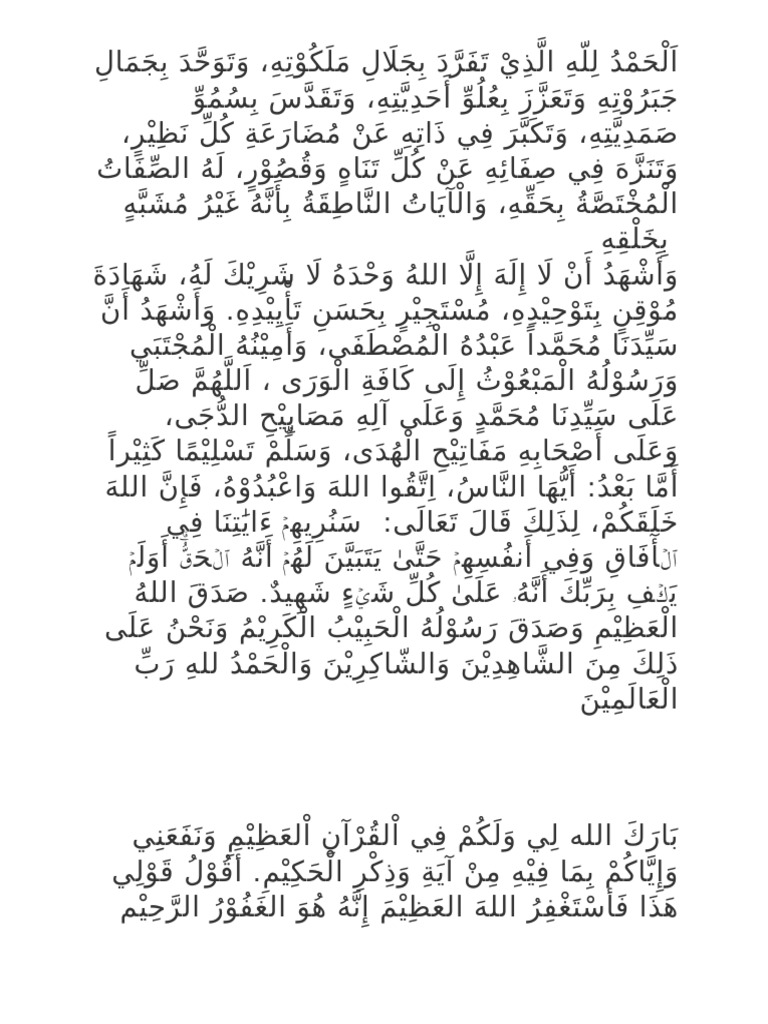 اَلْحَمْدُ لِلّهِ الَّذِيْ تَفَرَّدَ بِجَلَالِ مَلَكُوْتِهِ، وَتَوَحَّدَ بِجَمَالِ
جَبَرُوْتِهِ وَتَعَزَّزَ بِعُلُوِّ أَحَدِيَّتِهِ، وَتَقَدَّسَ بِسُمُوِّ
صَمَدِيَّتِهِ، وَتَكَبَّرَ فِي ذَاتِهِ عَنْ مُضَارَعَةِ كُلِّ نَظِيْرٍ،
وَتَنَزَّهَ فِي صِفَائِهِ عَنْ كُلِّ تَنَاهٍ وَقُصُوْرٍ، لَهُ الصِّفَاتُ
الْمُخْتَصَّةُ بِحَقِّهِ، وَالْآيَاتُ النَّاطِقَةُ بِأَنَّهُ غَيْرُ مُشَبَّهٍ
بِخَلْقِهِ
وَأَشْهَدُ أَنْ لَا إِلَهَ إِلَّا اللهُ وَحْدَهُ لَا شَرِيْكَ لَهُ، شَهَادَةَ
مُوْقِنٍ بِتَوْحِيْدِهِ، مُسْتَجِيْرٍ بِحَسَنِ تَأْيِيْدِهِ. وَأَشْهَدُ أَنَّ
سَيِّدَنَا مُحَمَّداً عَبْدُهُ الْمُصْطَفَى، وَأَمِيْنُهُ الْمُجْتَبَي
وَرَسُوْلُهُ الْمَبْعُوْثُ إِلَى كَافَةِ الْوَرَى ، اَللَّهُمَّ صَلِّ
عَلَى سَيِّدِنَا مُحَمَّدٍ وَعَلَى آلِهِ مَصَابِيْحِ الدُّجَى،
وَعَلَى أَصْحَابِهِ مَفَاتِيْحِ الْهُدَى، وَسَلِّمْ تَسْلِيْمًا كَثِيْراً
أَمَّا بَعْدُ: أَيُّهَا النَّاسُ، اِتَّقُوا اللهَ وَاعْبُدُوْهُ، فَإِنَّ اللهَ
خَلَقَكُمْ، لِذَلِكَ قَالَ تَعَالَى: سَنُرِيهِمۡ ءَايَٰتِنَا فِي
ٱلۡأٓفَاقِ وَفِي أَنفُسِهِمۡ حَتَّىٰ يَتَبَيَّنَ لَهُمۡ أَنَّهُ ٱلۡحَقُّۗ أَوَلَمۡ
يَكۡفِ بِرَبِّكَ أَنَّهُۥ عَلَىٰ كُلِّ شَيۡءٖ شَهِيدٌ. صَدَقَ اللهُ
الْعَظِيْمِ وَصَدَقَ رَسُوْلُهُ الْحَبِيْبُ الْكَرِيْمُ وَنَحْنُ عَلَى
ذَلِكَ مِنَ الشَّاهِدِيْنَ وَالشّاكِرِيْنَ وَالْحَمْدُ للهِ رَبِّ
الْعَالَمِيْنَ
بَارَكَ الله لِي وَلَكُمْ فِي اْلقُرْآنِ اْلعَظِيْمِ وَنَفَعَنِي
وَإِيَّاكُمْ بِمَا فِيْهِ مِنْ آيَةِ وَذِكْرِ الْحَكِيْمِ. أقُوْلُ قَوْلِي
هَذَا فَأَسْتَغْفِرُ اللهَ العَظِيْمَ إِنَّهُ هُوَ الغَفُوْرُ الرَّحِيْم